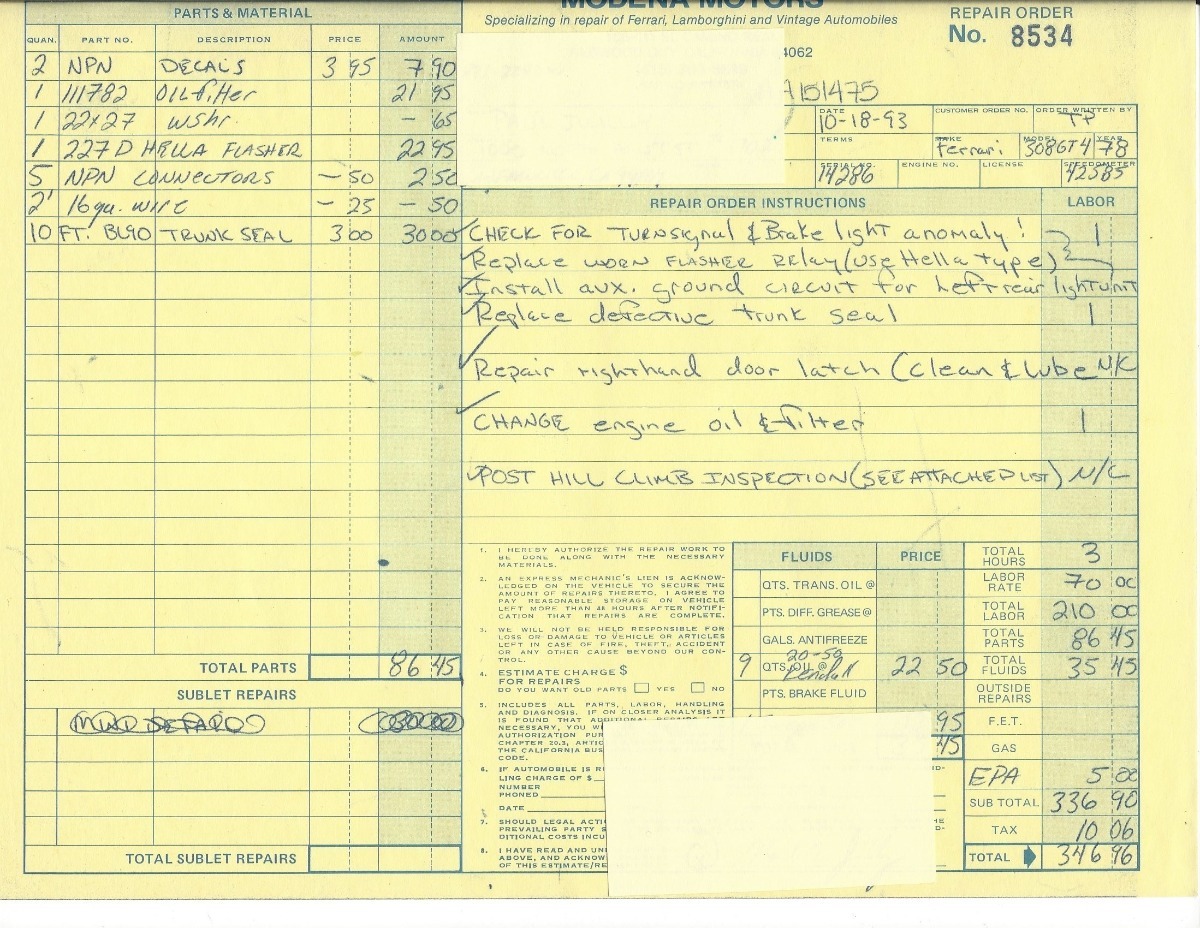 MODENA MOTORS
Specializing in repair of Ferrari, Lamborghini and Vintage Automobiles
4062
REPAIR ORDER
No. 8534
A151475
DATE 10-18-93
CUSTOMER ORDER NO.
ORDER WRITTEN BY TP
TERMS
MAKE Ferrari
MODEL 308GT4
YEAR 78
SERIAL NO. 14286
ENGINE NO.
LICENSE
SPEEDOMETER 42585
PARTS & MATERIAL
QUAN. PART NO. DESCRIPTION PRICE AMOUNT
2 NPN DECALS 3 95 7 90
1 111782 OILfilter 21 95
1 22x27 wshr. - 65
1 227D HELLA FLASHER 22 95
5 NPN CONNECTORS - 50 2 50
2' 16ga. wire - 25 - 50
10 FT. BL90 TRUNK SEAL 3 00 30 00
TOTAL PARTS 86 45
SUBLET REPAIRS
TOTAL SUBLET REPAIRS
REPAIR ORDER INSTRUCTIONS LABOR
CHECK FOR TURNSIGNAL & Brake light anomaly! 1
Replace WORN FLASHER RELAY (USE Hella type)
Install aux. ground circuit for Left rear light unit
Replace defective trunk seal 1
Repair righthand door latch (Clean & Lube N/C
CHANGE engine oil & filter 1
POST HILL CLIMB INSPECTION (SEE ATTACHED LIST) N/C
1. I HEREBY AUTHORIZE THE REPAIR WORK TO
BE DONE ALONG WITH THE NECESSARY
MATERIALS.
2. AN EXPRESS MECHANIC'S LIEN IS ACKNOW-
LEDGED ON THE VEHICLE TO SECURE THE
AMOUNT OF REPAIRS THERETO. I AGREE TO
PAY REASONABLE STORAGE ON VEHICLE
LEFT MORE THAN 48 HOURS AFTER NOTIFI-
CATION THAT REPAIRS ARE COMPLETE.
3. WE WILL NOT BE HELD RESPONSIBLE FOR
LOSS OR DAMAGE TO VEHICLE OR ARTICLES
LEFT IN CASE OF FIRE, THEFT, ACCIDENT
OR ANY OTHER CAUSE BEYOND OUR CON-
TROL.
4. ESTIMATE CHARGE $
FOR REPAIRS
DO YOU WANT OLD PARTS YES NO
5. INCLUDES ALL PARTS, LABOR, HANDLING
AND DIAGNOSIS. IF ON CLOSER ANALYSIS IT
IS FOUND THAT ADDITIONAL
NECESSARY, YOU
AUTHORIZATION
CHAPTER 20.3,
THE CALIFORNIA BUS
CODE.
6. IF AUTOMOBILE IS
LING CHARGE OF $
NUMBER
PHONED
DATE
7. SHOULD LEGAL
PREVAILING PARTY
DITIONAL COSTS
8. I HAVE READ AND
ABOVE, AND
OF THIS
FLUIDS PRICE
QTS. TRANS. OIL @
PTS. DIFF. GREASE @
GALS. ANTIFREEZE
9 QTS. OIL @ 20-50 Kendall 22 50
PTS. BRAKE FLUID
95
45
TOTAL HOURS 3
LABOR RATE 70 00
TOTAL LABOR 210 00
TOTAL PARTS 86 45
TOTAL FLUIDS 35 45
OUTSIDE REPAIRS
F.E.T.
GAS
EPA 5 00
SUB TOTAL 336 90
TAX 10 06
TOTAL 346 96